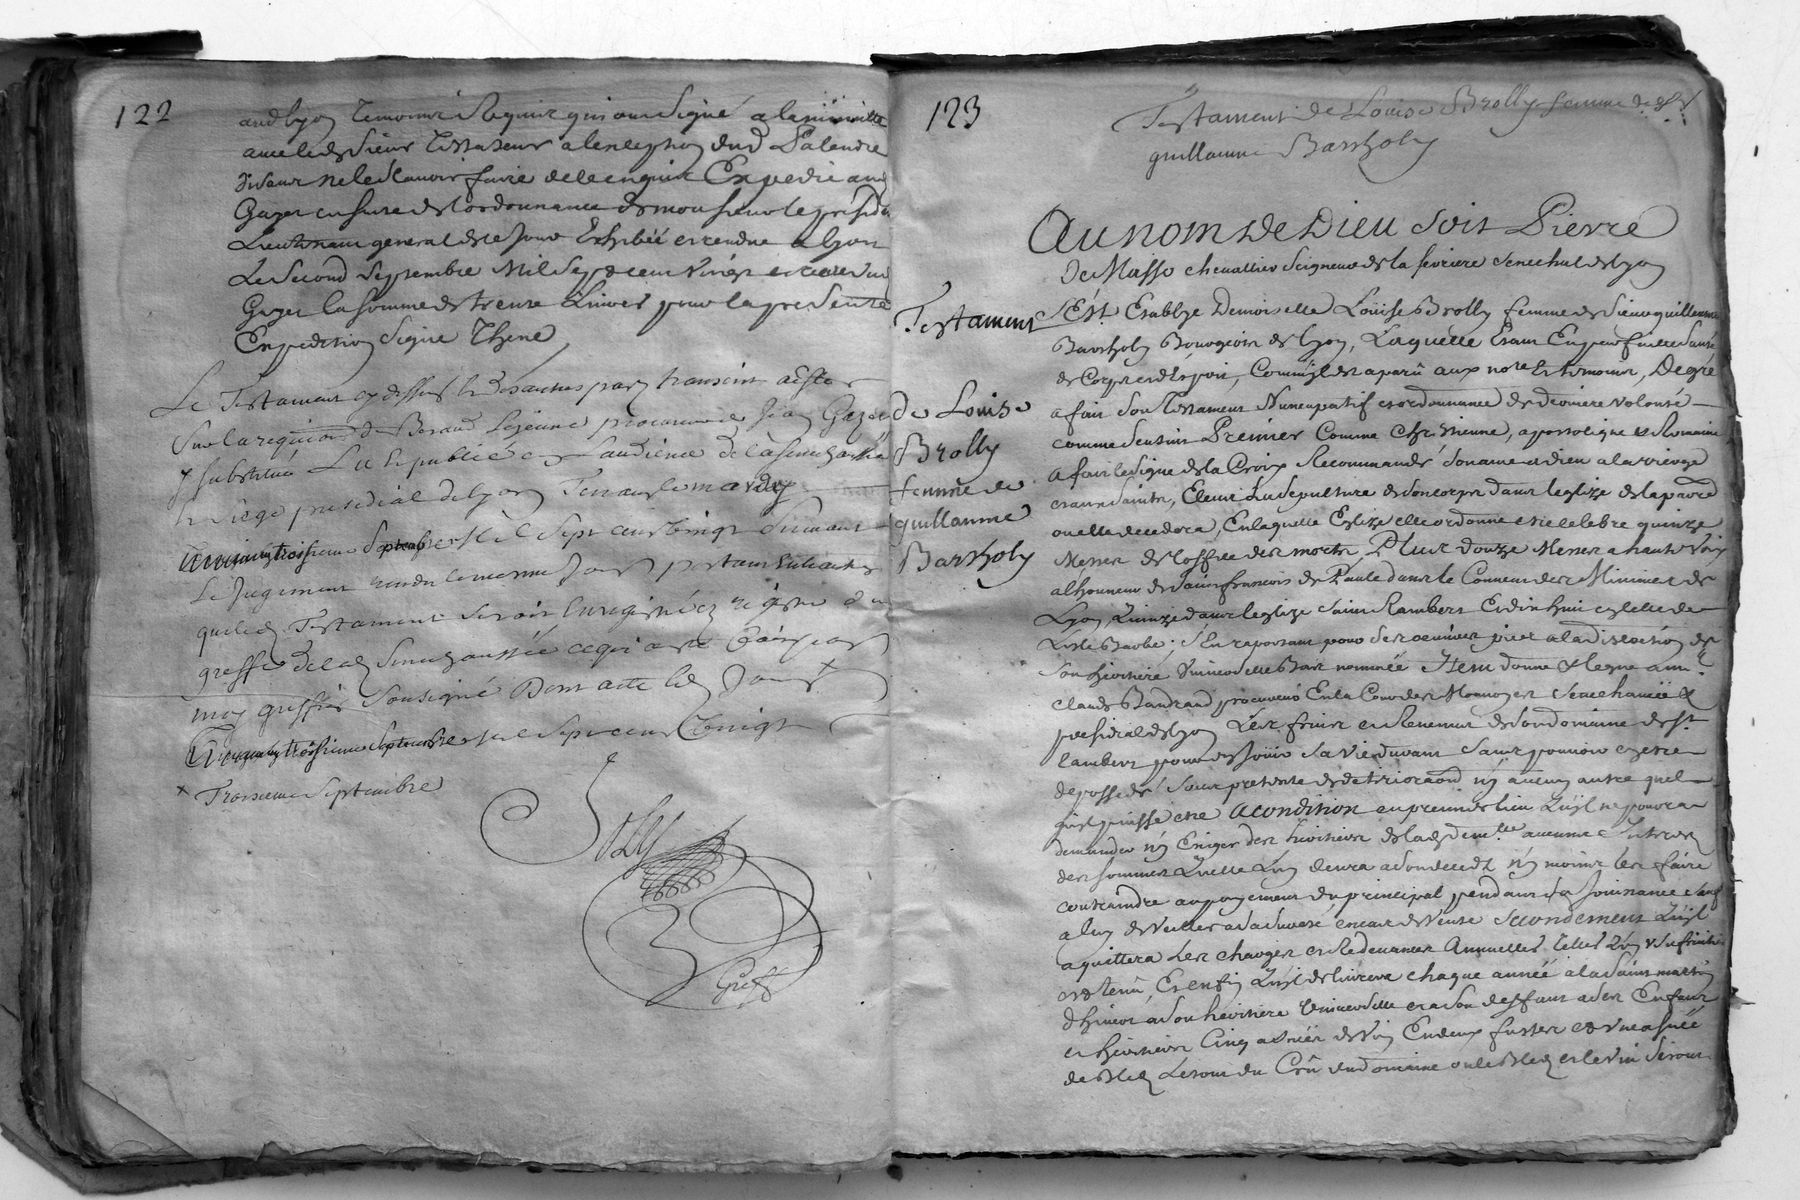 122
audlyon temoins Requis qui ont signé a la minutte
avec ledt sieur Testateur a lexception dud Palandre
disant ne le scavoir faire de ce enquis Expedié aud
Gayet en suite de lordonnance de monsieur le presidt
Lieutenant general de ce jour Exhibée et rendue a lyon
Le second septembre Mil sept cent vingt
Gayet la somme de trente Livres pour la presente
Expedition signé Thene
Le Testament cy dessus et des autres parts transcrit a esté
Sur la requisition de Beraud Lejeune procureur de Jean Gayet
y substitué Lu et publié en Laudience de la senechaussée
et siege presidial de lyon Tenant le mardy
troisieme septembre Mil sept cent vingt suivant
Le Jugement rendu le meme Jour portant entre autres
que led Testament seroit Enregistré ez registre du
greffe de lad Senechaussée ce qui a esté fait par
moy greffier sousigné Dont acte led Jour +
troisieme septembre Mil sept cent vingt
+ Troisieme septembre
Greff
123
Testament de Louise Brolly femme de Sr
guillaume Bartholy
Testament
de Louise
Brolly
femme de
guillaume
Bartholy
Au nom de Dieu soit Pierre
de Masso chevallier seigneur de la ferriere senechal de lyon
S'Est Establye Demoiselle Loüise Brolly femme de sieur guillaume
Bartholy Bourgeois de lyon, Laquelle Estant En parfaitte santé
de Corps et desprit, Comme il est aparü aux nore et temoins, De gré
a fait son Testament Nuncupatif et ordonnance de derniere volonté
comme sensuit Premier Comme chretienne, apostolique & Romaine
A fait le signe de la Croix Recommandé son ame a dieu a la vierge
et aux saints, Eleu La sepulture de son corps dans leglize de la parroe
ou elle decedera, En laquelle Eglize elle ordonne estre celebré quinze
Messes de loffice des morts, Plus douze Messes a haute voix
a lhonneur de saint francois de Paule dans le Couvent des Minimes de
Lyon quinze dans leglize saint Rambert Et dix huit en celle de
Lisle Barbe; s'En reportant pour ses oeuvres pies a la discretion de
son heritiere universelle Bas nommée Item donne & legue a mr
Claude Bandrand procureur En la Cour des Monoyes senechaussée &
presidial de lyon Les fruits et Revenus de son domaine de st
lambert pour en Jouir sa vie durant sans pouvoir en etre
depossedé sous pretexte de deterioraon ny aucun autre quel
quil puisse etre A condition en premier lieu quil ne pourra
demander ny Exiger des heritiers de lade demlle aucuns Interets
des sommes quelle Luy devra a son deceds ny moins les faire
contraindre au payement du principal pendant sa Jouissance sauf
a luy de veiller a sa sureté en cas de vente secondement quil
aquittera Les charges et Redevances Annuelles telles quun usufruitier
est tenu, Et enfin quil delivrera chaque année a la saint martin
dhiver a son heritiere universelle et a son deffaut a ses Enfans
et heritiers Cinq asnées de vin En deux futtes et une asnée
de Bled Le tout du Crû dud domaine ou le Bled et le vin seront